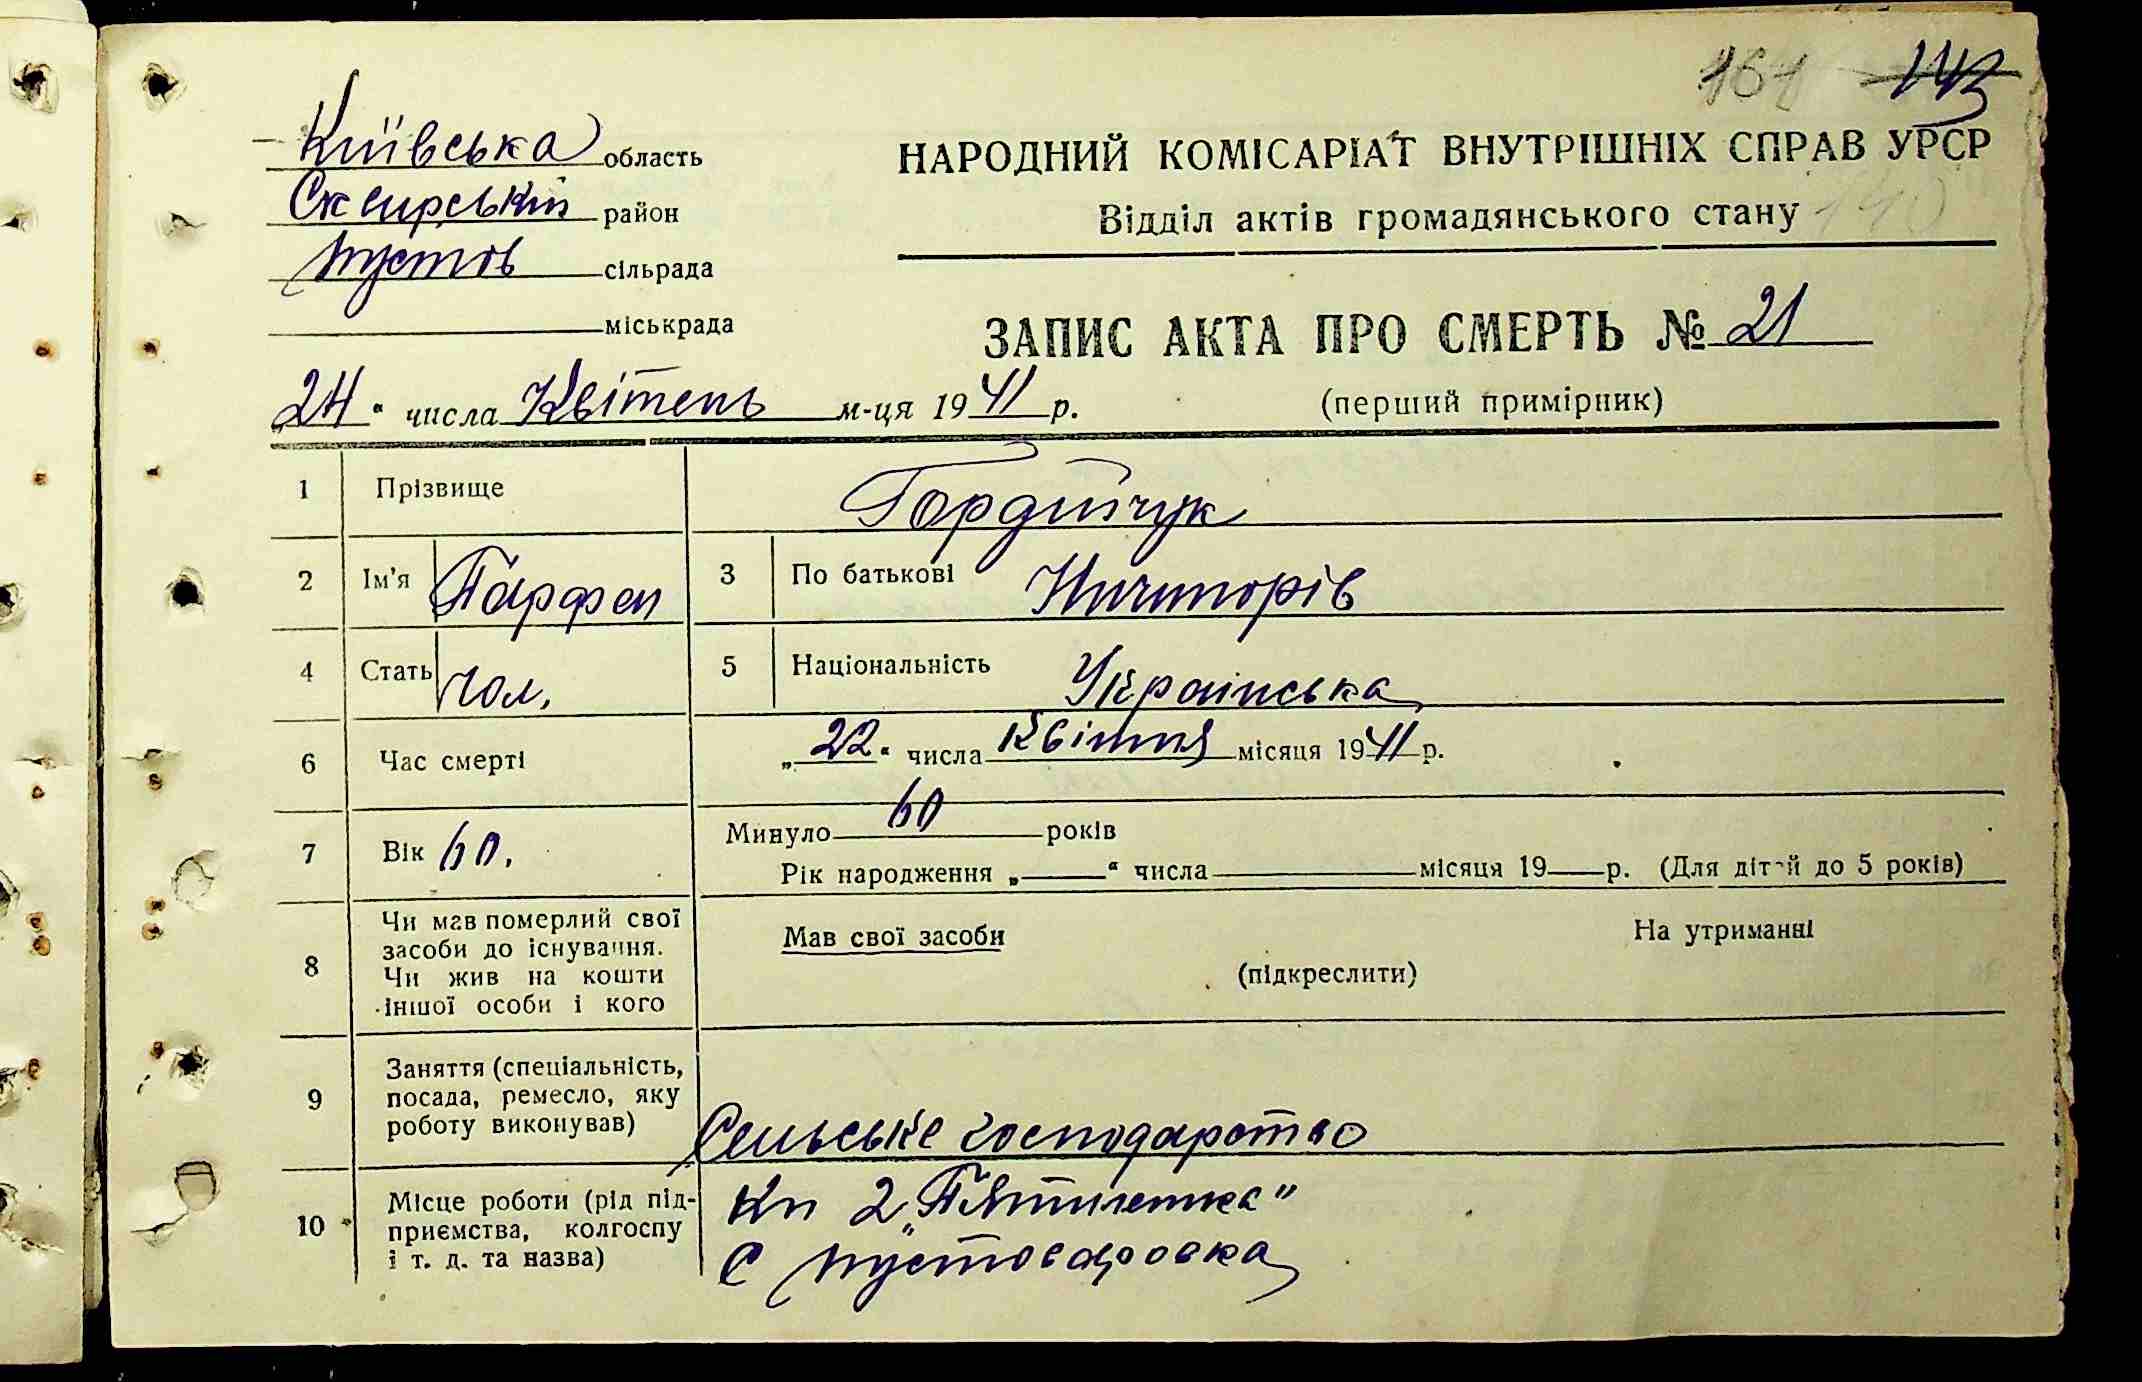 161 143
Київська область
Сквирський район
Пустов сільрада
міськрада
НАРОДНИЙ КОМІСАРІАТ ВНУТРІШНІХ СПРАВ УРСР
Відділ актів громадянського стану 140
ЗАПИС АКТА ПРО СМЕРТЬ № 21
(перший примірник)
„24“ числа Квітень м-ця 1941 р.
1 Прізвище Гордійчук
2 Ім'я Парфен 3 По батькові Ничипорів
4 Стать Чол. 5 Національність Українська
6 Час смерті „22“ числа Квітня місяця 1941 р.
7 Вік 60. Минуло 60 років
Рік народження „ “ числа місяця 19 р. (Для дітей до 5 років)
8 Чи мав померлий свої
засоби до існування.
Чи жив на кошти
іншої особи і кого
Мав свої засоби На утриманні
(підкреслити)
9 Заняття (спеціальність,
посада, ремесло, яку
роботу виконував)
Сельське господарство
10 Місце роботи (рід під-
приємства, колгоспу
і т. д. та назва)
Кп 2 „Пятилетка"
С Пустоваровка